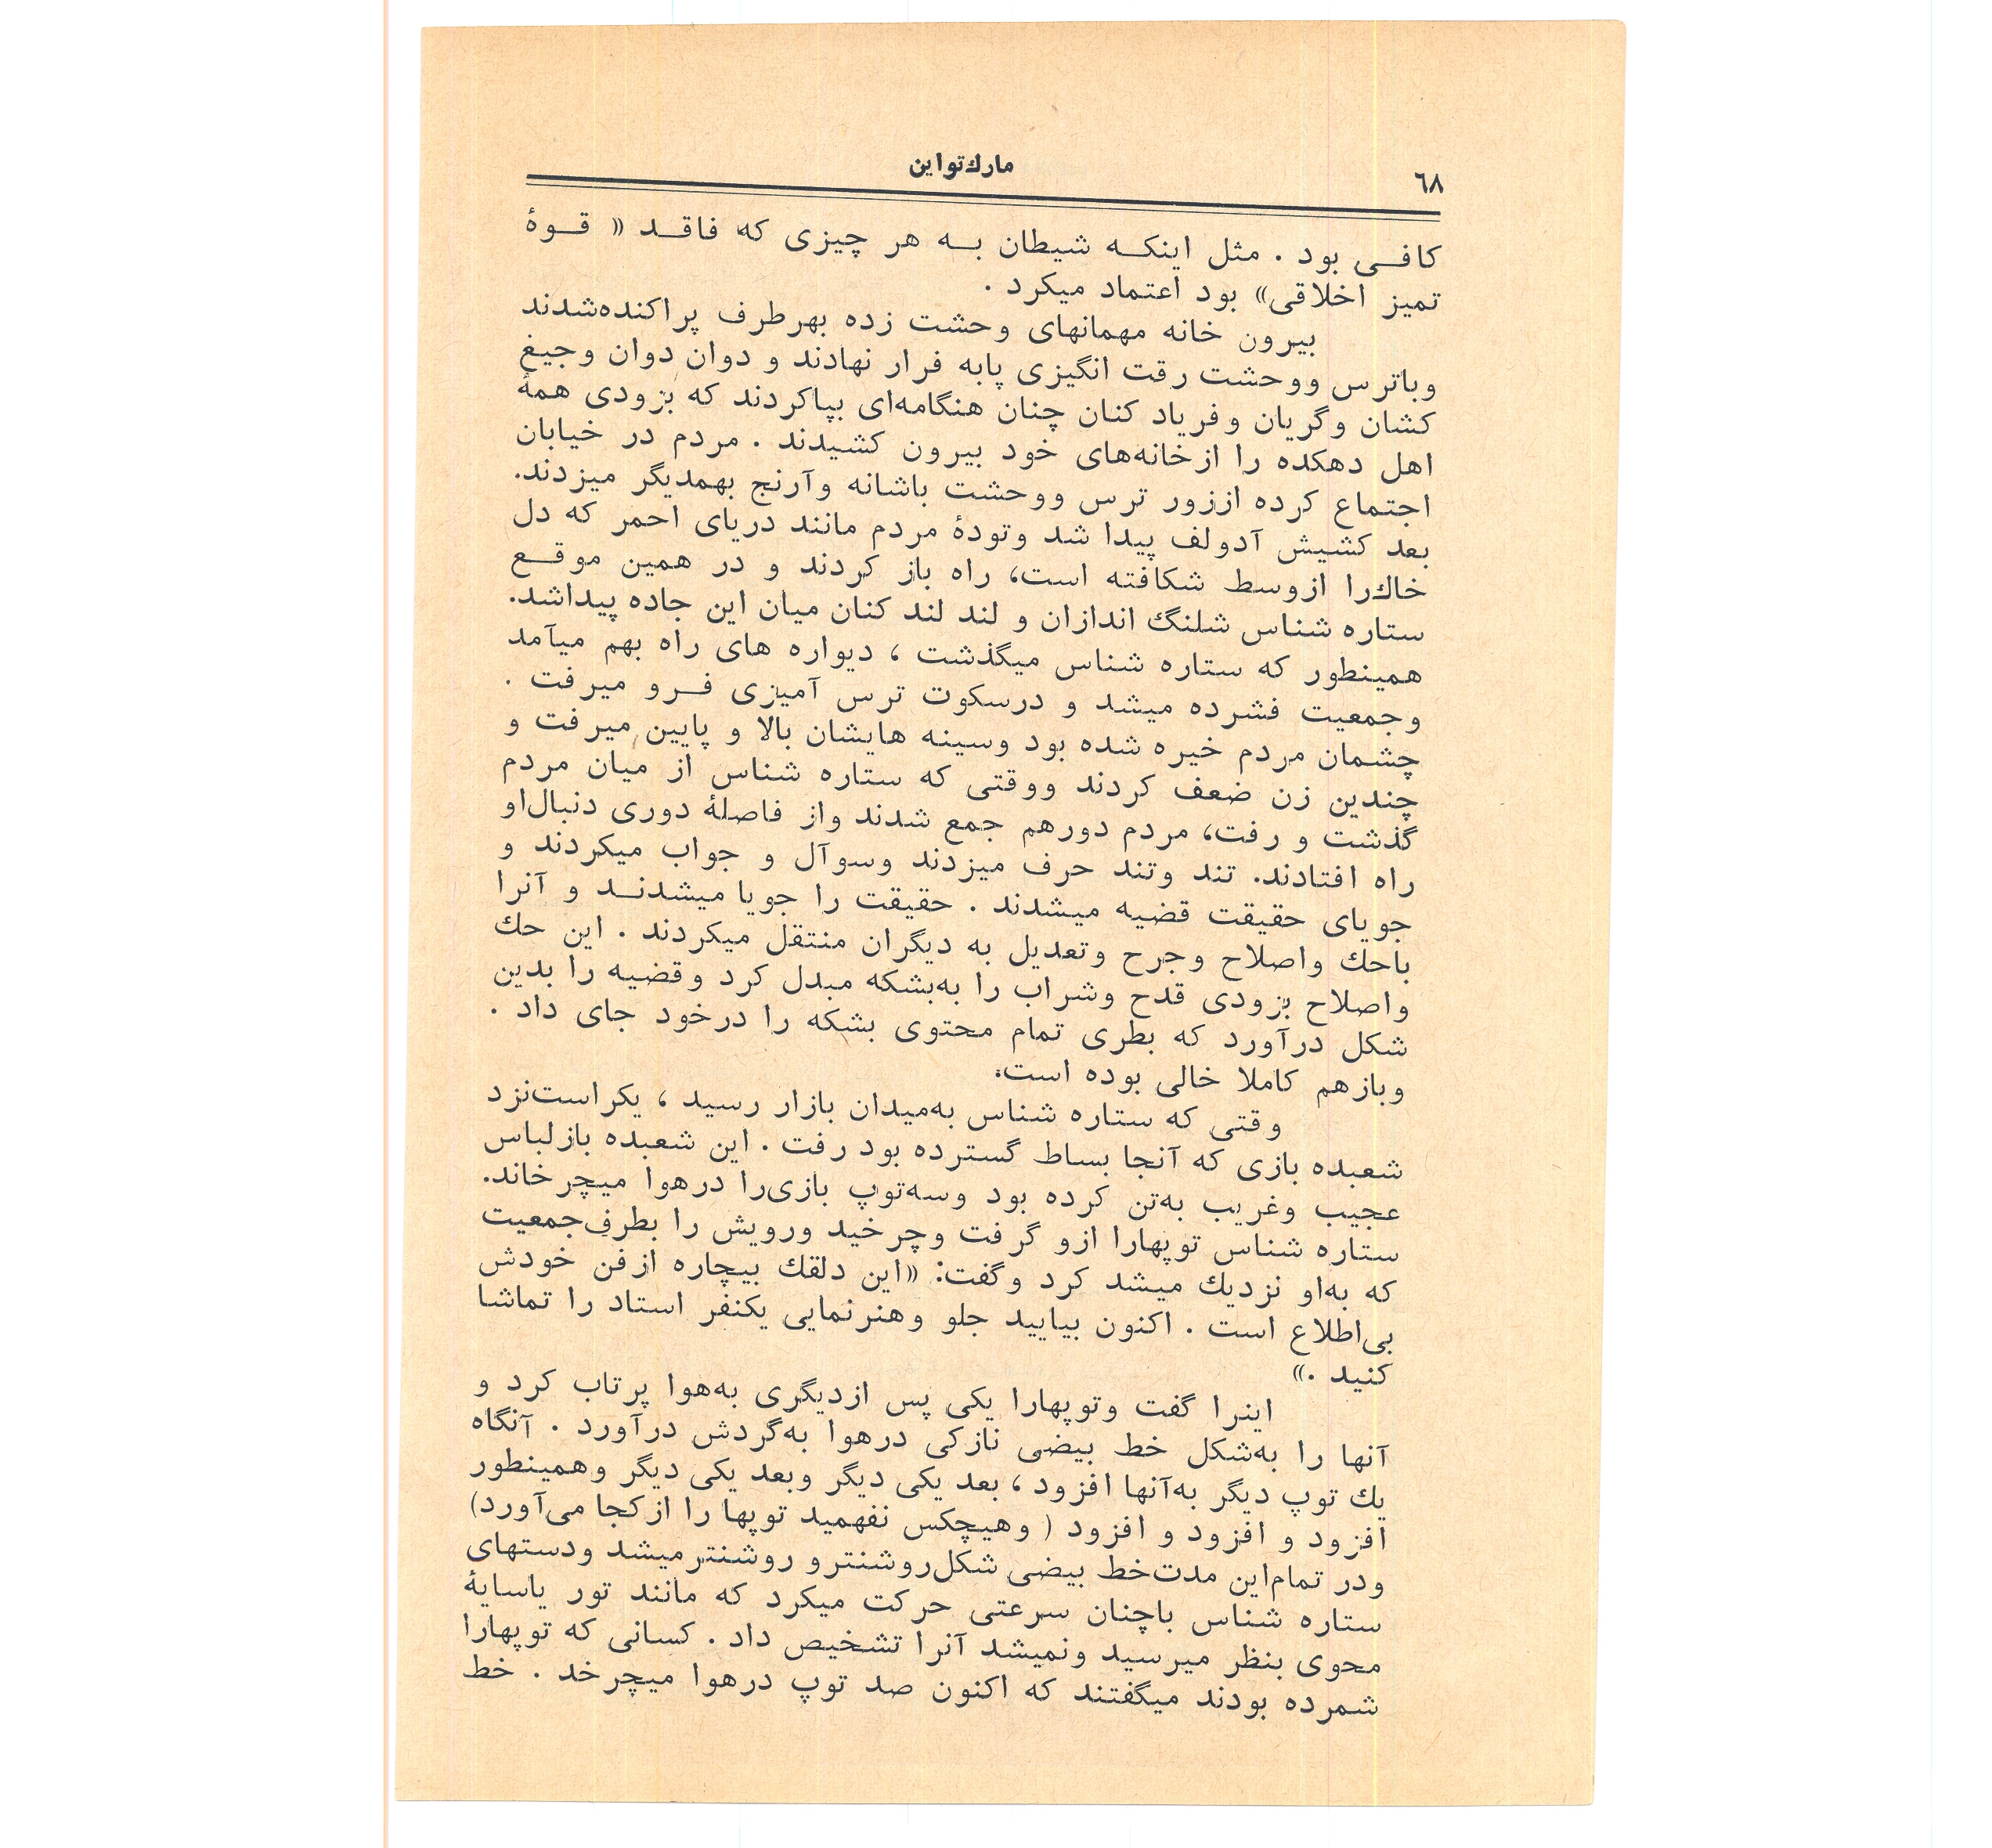 ٦٨
مارك‌تواین
كافـــی بود . مثل اینكـــه شیطان بـــه هر چیزی كه فاقـــد « قـــوۀ
تمیز اخلاقی» بود اعتماد میكرد .
بیرون خانه مهمانهای وحشت زده بهرطرف پراكنده‌شدند
وباترس ووحشت رقت انگیزی پابه فرار نهادند و دوان دوان وجیغ
كشان وگریان وفریاد كنان چنان هنگامه‌ای بپاكردند كه بزودی همۀ
اهل دهكده را ازخانه‌های خود بیرون كشیدند . مردم در خیابان
اجتماع كرده اززور ترس ووحشت باشانه وآرنج بهمدیگر میزدند.
بعد كشیش آدولف پیدا شد وتودۀ مردم مانند دریای احمر كه دل
خاك‌را ازوسط شكافته است، راه باز كردند و در همین موقـــع
ستاره شناس شلنگ اندازان و لند لند كنان میان این جاده پیداشد.
همینطور كه ستاره شناس میگذشت ، دیواره های راه بهم میآمد
وجمعیت فشرده میشد و درسكوت ترس آمیزی فـــرو میرفت .
چشمان مردم خیره شده بود وسینه هایشان بالا و پایین میرفت و
چندین زن ضعف كردند ووقتی كه ستاره شناس از میان مردم
گذشت و رفت، مردم دورهم جمع شدند واز فاصلۀ دوری دنبال‌او
راه افتادند. تند وتند حرف میزدند وسوآل و جواب میكردند و
جویای حقیقت قضیه میشدند . حقیقت را جویا میشدنـــد و آنرا
باحك واصلاح وجرح وتعدیل به دیگران منتقل میكردند . این حك
واصلاح بزودی قدح وشراب را به‌بشكه مبدل كرد وقضیه را بدین
شكل درآورد كه بطری تمام محتوی بشكه را درخود جای داد .
وبازهم كاملا خالی بوده است.
وقتی كه ستاره شناس به‌میدان بازار رسید ، یكراست‌نزد
شعبده بازی كه آنجا بساط گسترده بود رفت . این شعبده بازلباس
عجیب وغریب به‌تن كرده بود وسه‌توپ بازی‌را درهوا میچرخاند.
ستاره شناس توپهارا ازو گرفت وچرخید ورویش را بطرف‌جمعیت
كه به‌او نزدیك میشد كرد وگفت: «این دلقك بیچاره ازفن خودش
بی‌اطلاع است . اكنون بیایید جلو وهنرنمایی یكنفر استاد را تماشا
كنید .»
اینرا گفت وتوپهارا یكی پس ازدیگری به‌هوا پرتاب كرد و
آنها را به‌شكل خط بیضی نازكی درهوا به‌گردش درآورد . آنگاه
یك توپ دیگر به‌آنها افزود ، بعد یكی دیگر وبعد یكی دیگر وهمینطور
افزود و افزود و افزود ( وهیچكس نفهمید توپها را ازكجا می‌آورد)
ودر تمام‌این مدت‌خط بیضی شكل‌روشنترو روشنترمیشد ودستهای
ستاره شناس باچنان سرعتی حركت میكرد كه مانند تور یاسایۀ
محوی بنظر میرسید ونمیشد آنرا تشخیص داد . كسانی كه توپهارا
شمرده بودند میگفتند كه اكنون صد توپ درهوا میچرخد . خط